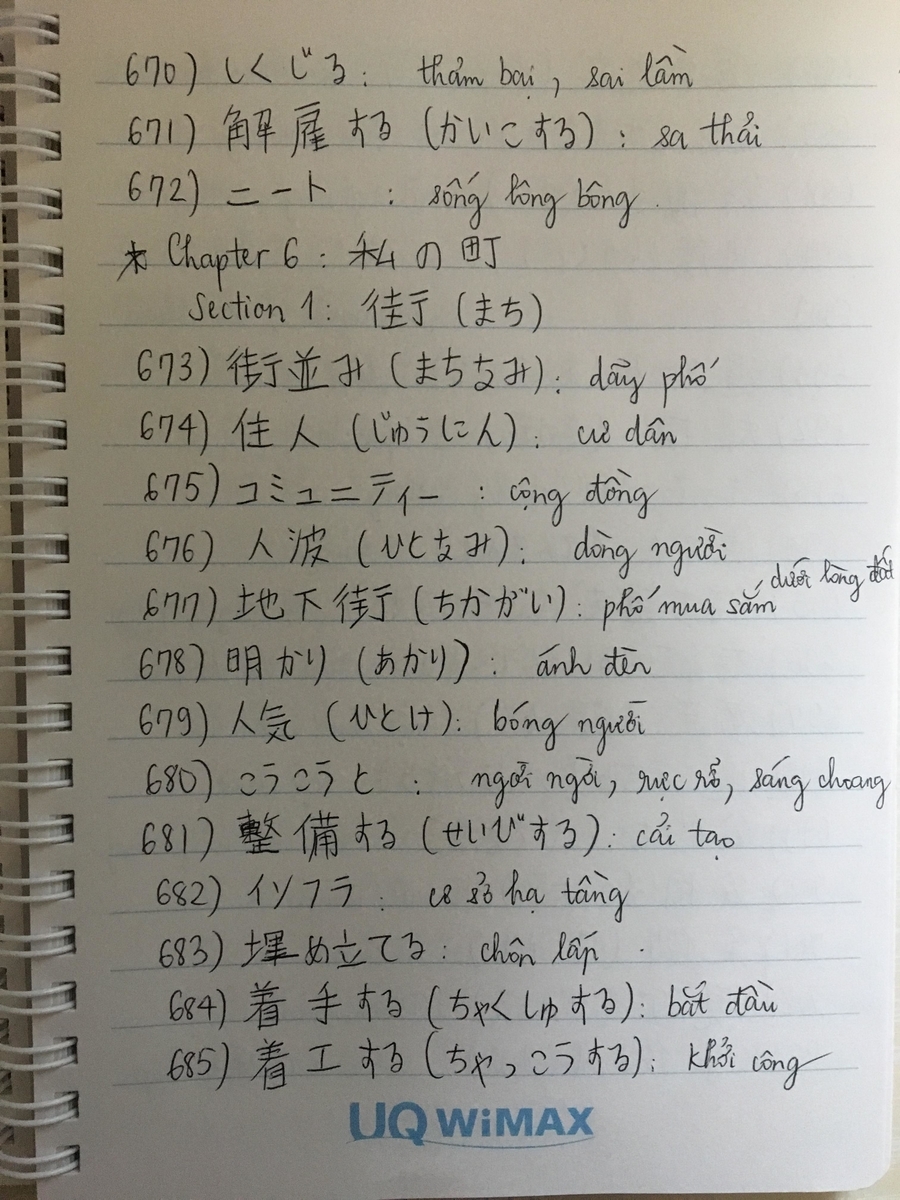 670) しくじる : thảm bại, sai lầm
671) 解雇する (かいこする) : sa thải
672) ニート : sống lông bông.
* Chapter 6 : 私の町
Section 1 : 街 (まち)
673) 街並み (まちなみ) : dãy phố
674) 住人 (じゅうにん) : cư dân
675) コミュニティー : cộng đồng
676) 人波 (ひとなみ) : dòng người
677) 地下街 (ちかがい) : phố mua sắm dưới lòng đất
678) 明かり (あかり) : ánh đèn
679) 人気 (ひとけ) : bóng người
680) こうこうと : ngời ngời, rực rỡ, sáng choang
681) 整備する (せいびする) : cải tạo
682) インフラ : cơ sở hạ tầng
683) 埋め立てる : chôn lấp.
684) 着手する (ちゃくしゅする) : bắt đầu
685) 着工する (ちゃっこうする) : khởi công
UQ WiMAX